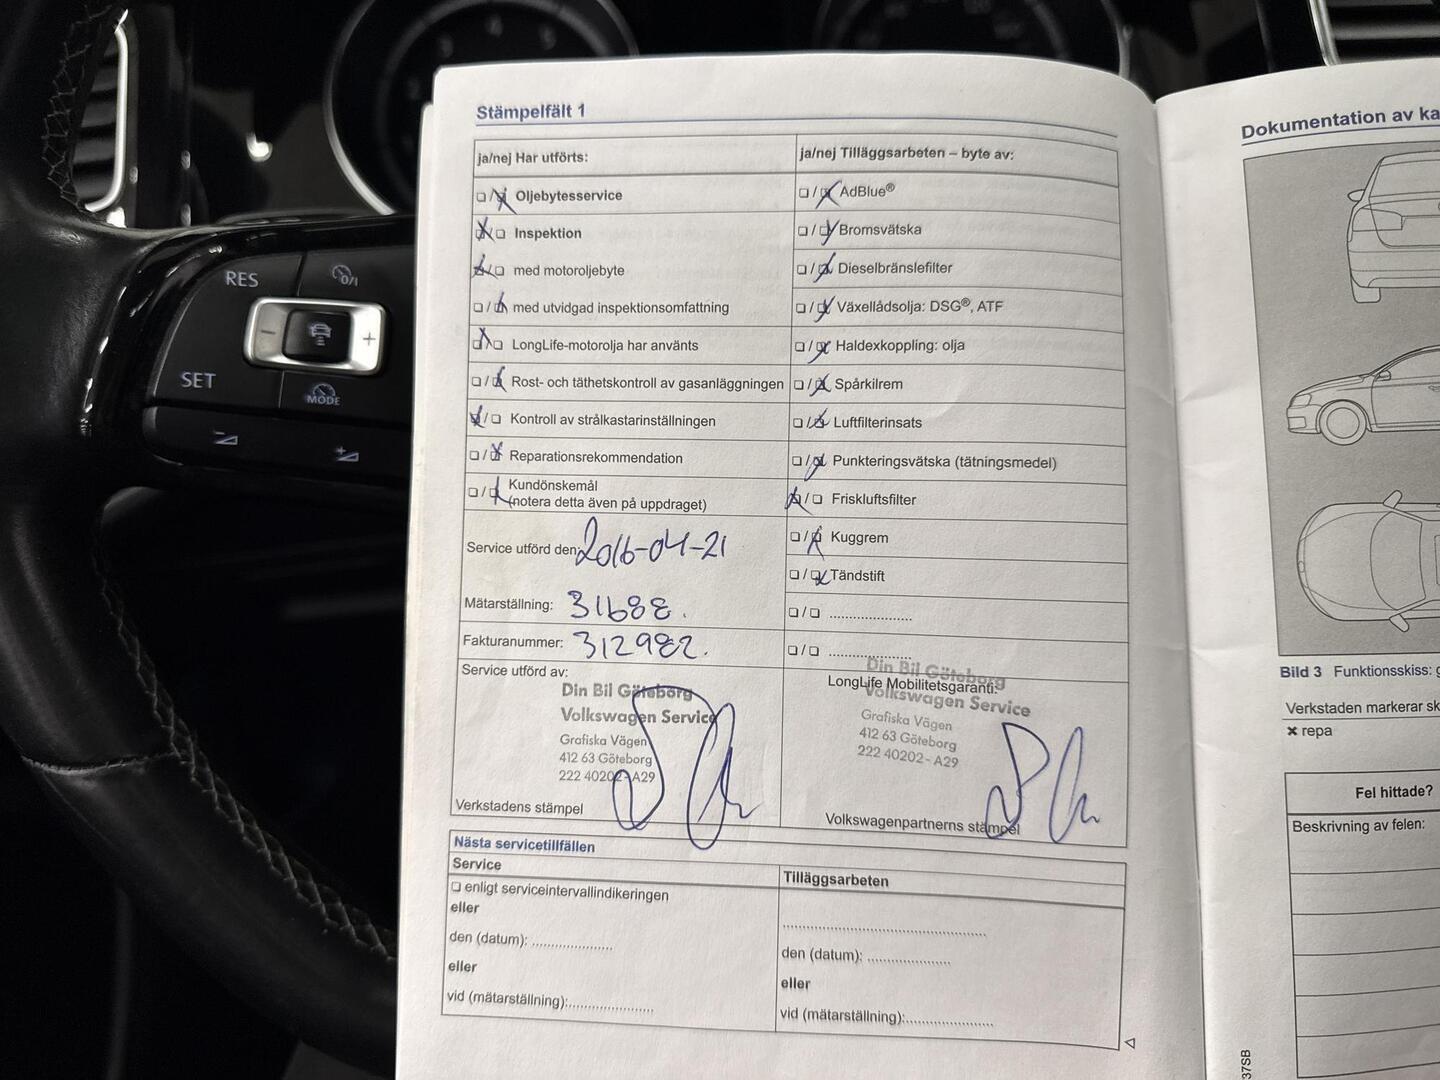 RES
0/I
SET
MODE
Stämpelfält 1
ja/nej Har utförts:
Oljebytesservice
Inspektion
med motoroljebyte
med utvidgad inspektionsomfattning
LongLife-motorolja har använts
Rost- och täthetskontroll av gasanläggningen
Kontroll av strålkastarinställningen
Reparationsrekommendation
Kundönskemål
(notera detta även på uppdraget)
Service utförd den 2016-04-21
Mätarställning: 31688.
Fakturanummer: 312982.
Service utförd av:
Din Bil Göteborg
Volkswagen Service
Grafiska Vägen
412 63 Göteborg
222 40202 - A29
Verkstadens stämpel
ja/nej Tilläggsarbeten – byte av:
AdBlue®
Bromsvätska
Dieselbränslefilter
Växellådsolja: DSG®, ATF
Haldexkoppling: olja
Spårkilrem
Luftfilterinsats
Punkteringsvätska (tätningsmedel)
Friskluftsfilter
Kuggrem
Tändstift
Din Bil Göteborg
LongLife Mobilitetsgaranti:
Volkswagen Service
Grafiska Vägen
412 63 Göteborg
222 40202 - A29
Volkswagenpartnerns stämpel
Nästa servicetillfällen
Service
enligt serviceintervallindikeringen
eller
den (datum): ....................
eller
vid (mätarställning):....................
Tilläggsarbeten
den (datum): ....................
eller
vid (mätarställning):....................
Dokumentation av ka
Bild 3 Funktionsskiss: g
Verkstaden markerar sk
× repa
Fel hittade?
Beskrivning av felen:
37SB